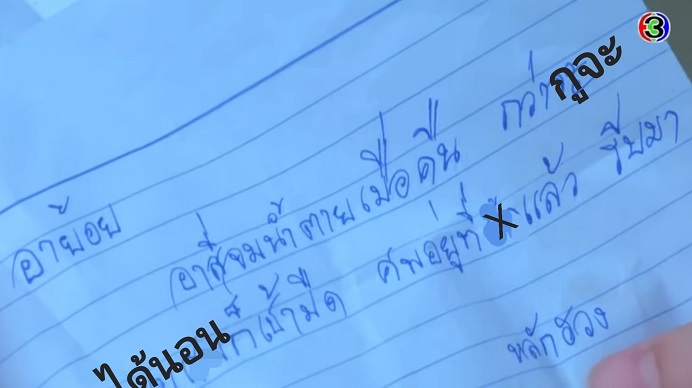 3
อาย้อย
อาสี่จมน้ำตายเมื่อคืน กว่ากูจะ
ได้นอนก็เช้ามืด ศพอยู่ที่ X แล้ว รีบมา
หลักฮวง